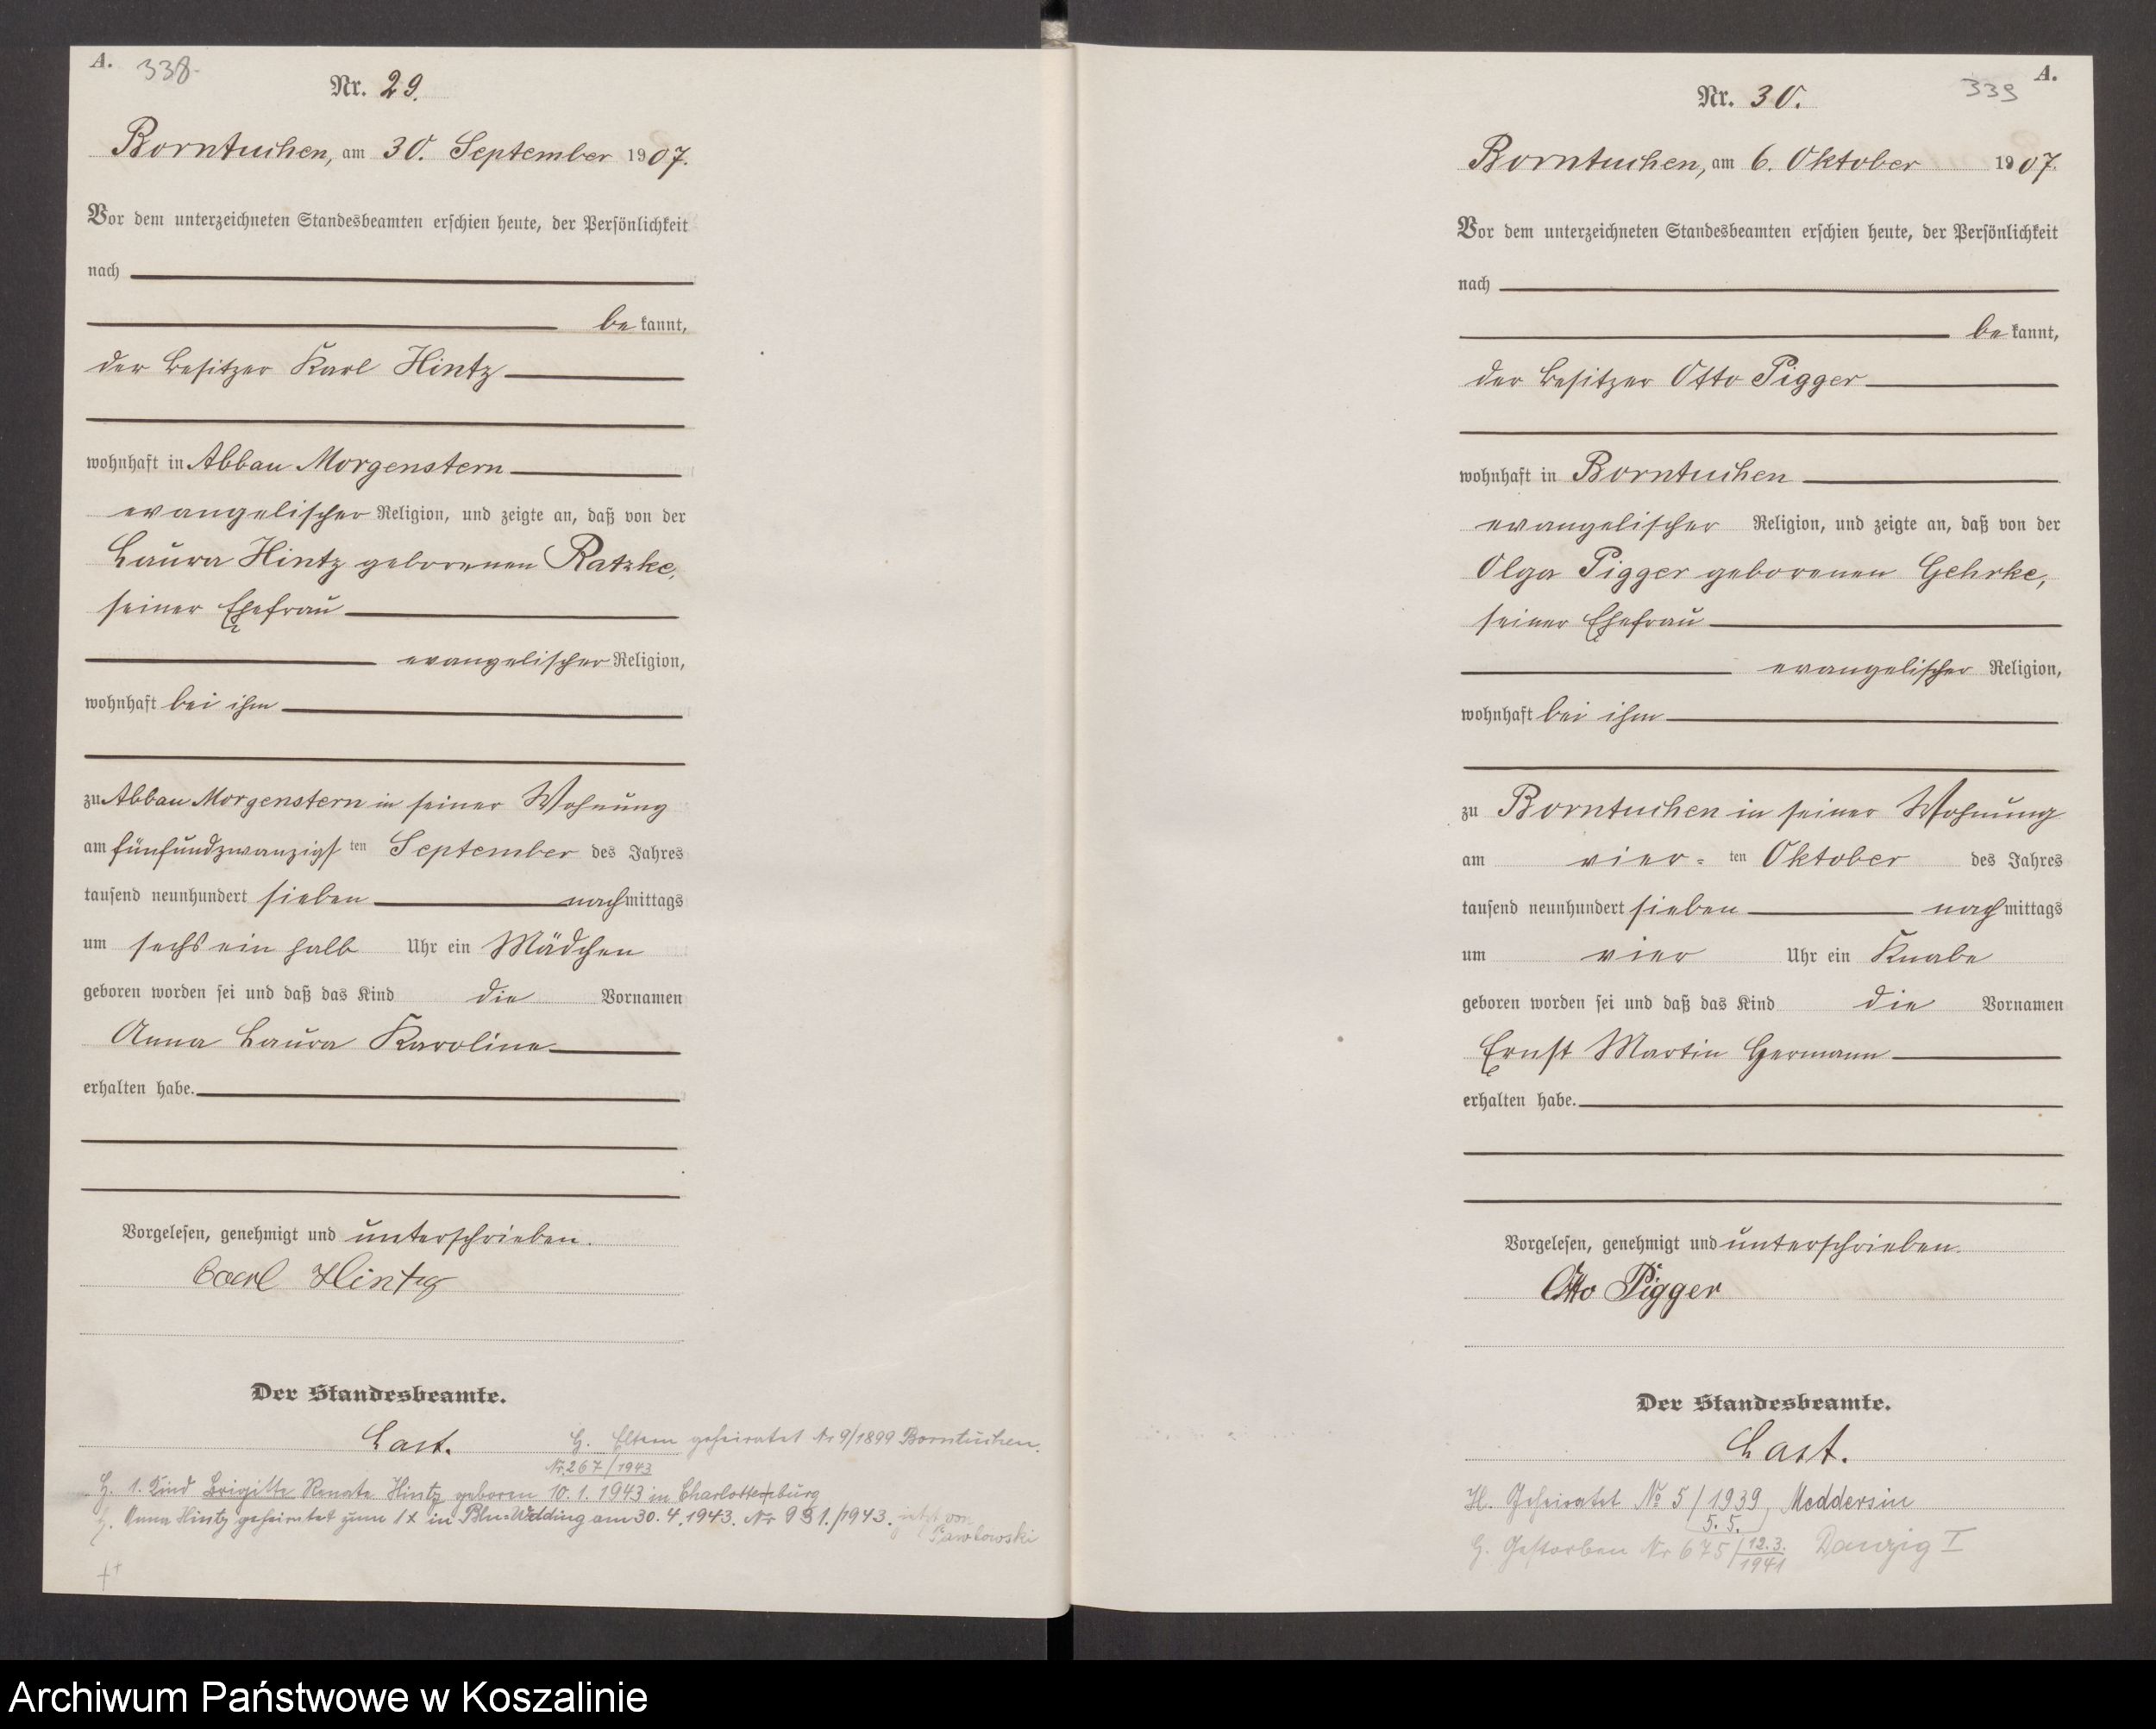 A. 338.
Nr. 29.
Borntuchen, am 30. September 1907.
Vor dem unterzeichneten Standesbeamten erschien heute, der Persönlichkeit
nach
be kannt,
der Besitzer Karl Hintz
wohnhaft in Abbau Morgenstern
evangelischer Religion, und zeigte an, daß von der
Laura Hintz geborenen Ratzke,
seiner Ehefrau
evangelischer Religion,
wohnhaft bei ihm
zu Abbau Morgenstern in seiner Wohnung
am fünfundzwanzigst ten September des Jahres
tausend neunhundert sieben nachmittags
um sechs ein halb Uhr ein Mädchen
geboren worden sei und daß das Kind die Vornamen
Anna Laura Karoline
erhalten habe.
Vorgelesen, genehmigt und unterschrieben.
Carl Hintz
Der Standesbeamte.
Last.
G. Eltern geheiratet Nr 9/1899 Borntuchen.
Nr. 267/1943
G. 1. Kind Brigitte Renate Hintz geboren 10. 1. 1943 in Charlottenburg
G. Anna Hintz geheiratet zum 1x in Bln-Wedding am 30. 4. 1943. Nr 931./1943. jetzt von
Pawlowski
A.
339
Nr. 30.
Borntuchen, am 6. Oktober 1907.
Vor dem unterzeichneten Standesbeamten erschien heute, der Persönlichkeit
nach
be kannt,
der Besitzer Otto Pigger
wohnhaft in Borntuchen
evangelischer Religion, und zeigte an, daß von der
Olga Pigger geborenen Gehrke,
seiner Ehefrau
evangelischer Religion,
wohnhaft bei ihm
zu Borntuchen in seiner Wohnung
am vier= ten Oktober des Jahres
tausend neunhundert sieben nachmittags
um vier Uhr ein Knabe
geboren worden sei und daß das Kind die Vornamen
Ernst Martin Hermann
erhalten habe.
Vorgelesen, genehmigt und unterschrieben.
Otto Pigger
Der Standesbeamte.
Last.
H. Geheiratet No 5/1939, Meddersin
5. 5.
G. Gestorben Nr 675/12.3. 1941 Danzig I
Archiwum Państwowe w Koszalinie